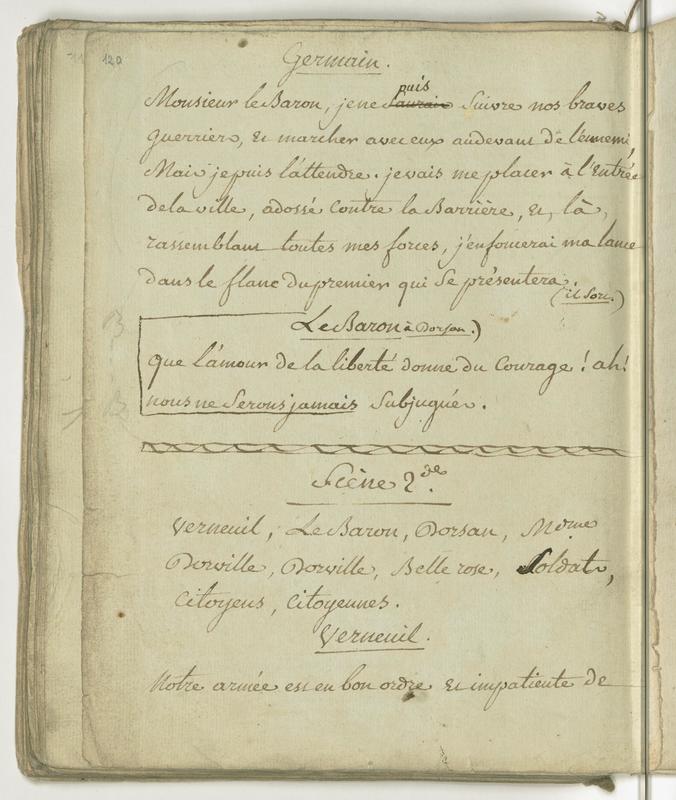 120
Germain.
puis
Monsieur le Baron, je ne saurais suivre nos braves
guerriers, et marcher avec eux audevant de l'ennemi,
Mais je puis l'attendre. je vais me placer à l'Entrée
de la ville, adossé contre la Barrière, et, là,
rassemblant toutes mes forces, j'enfoncerai ma lance
dans le flanc du premier qui se présentera.
(il sort.)
Le Baron à Dorsan.)
que l'amour de la liberté donne du Courage ! ah !
nous ne serons jamais subjugués.
Scène 2.de
Verneuil, Le Baron, Dorsan, Mdme
Dorville, Dorville, Belle rose, Soldats,
Citoyens, Citoyennes.
Verneuil.
Notre armée est en bon ordre et impatiente de